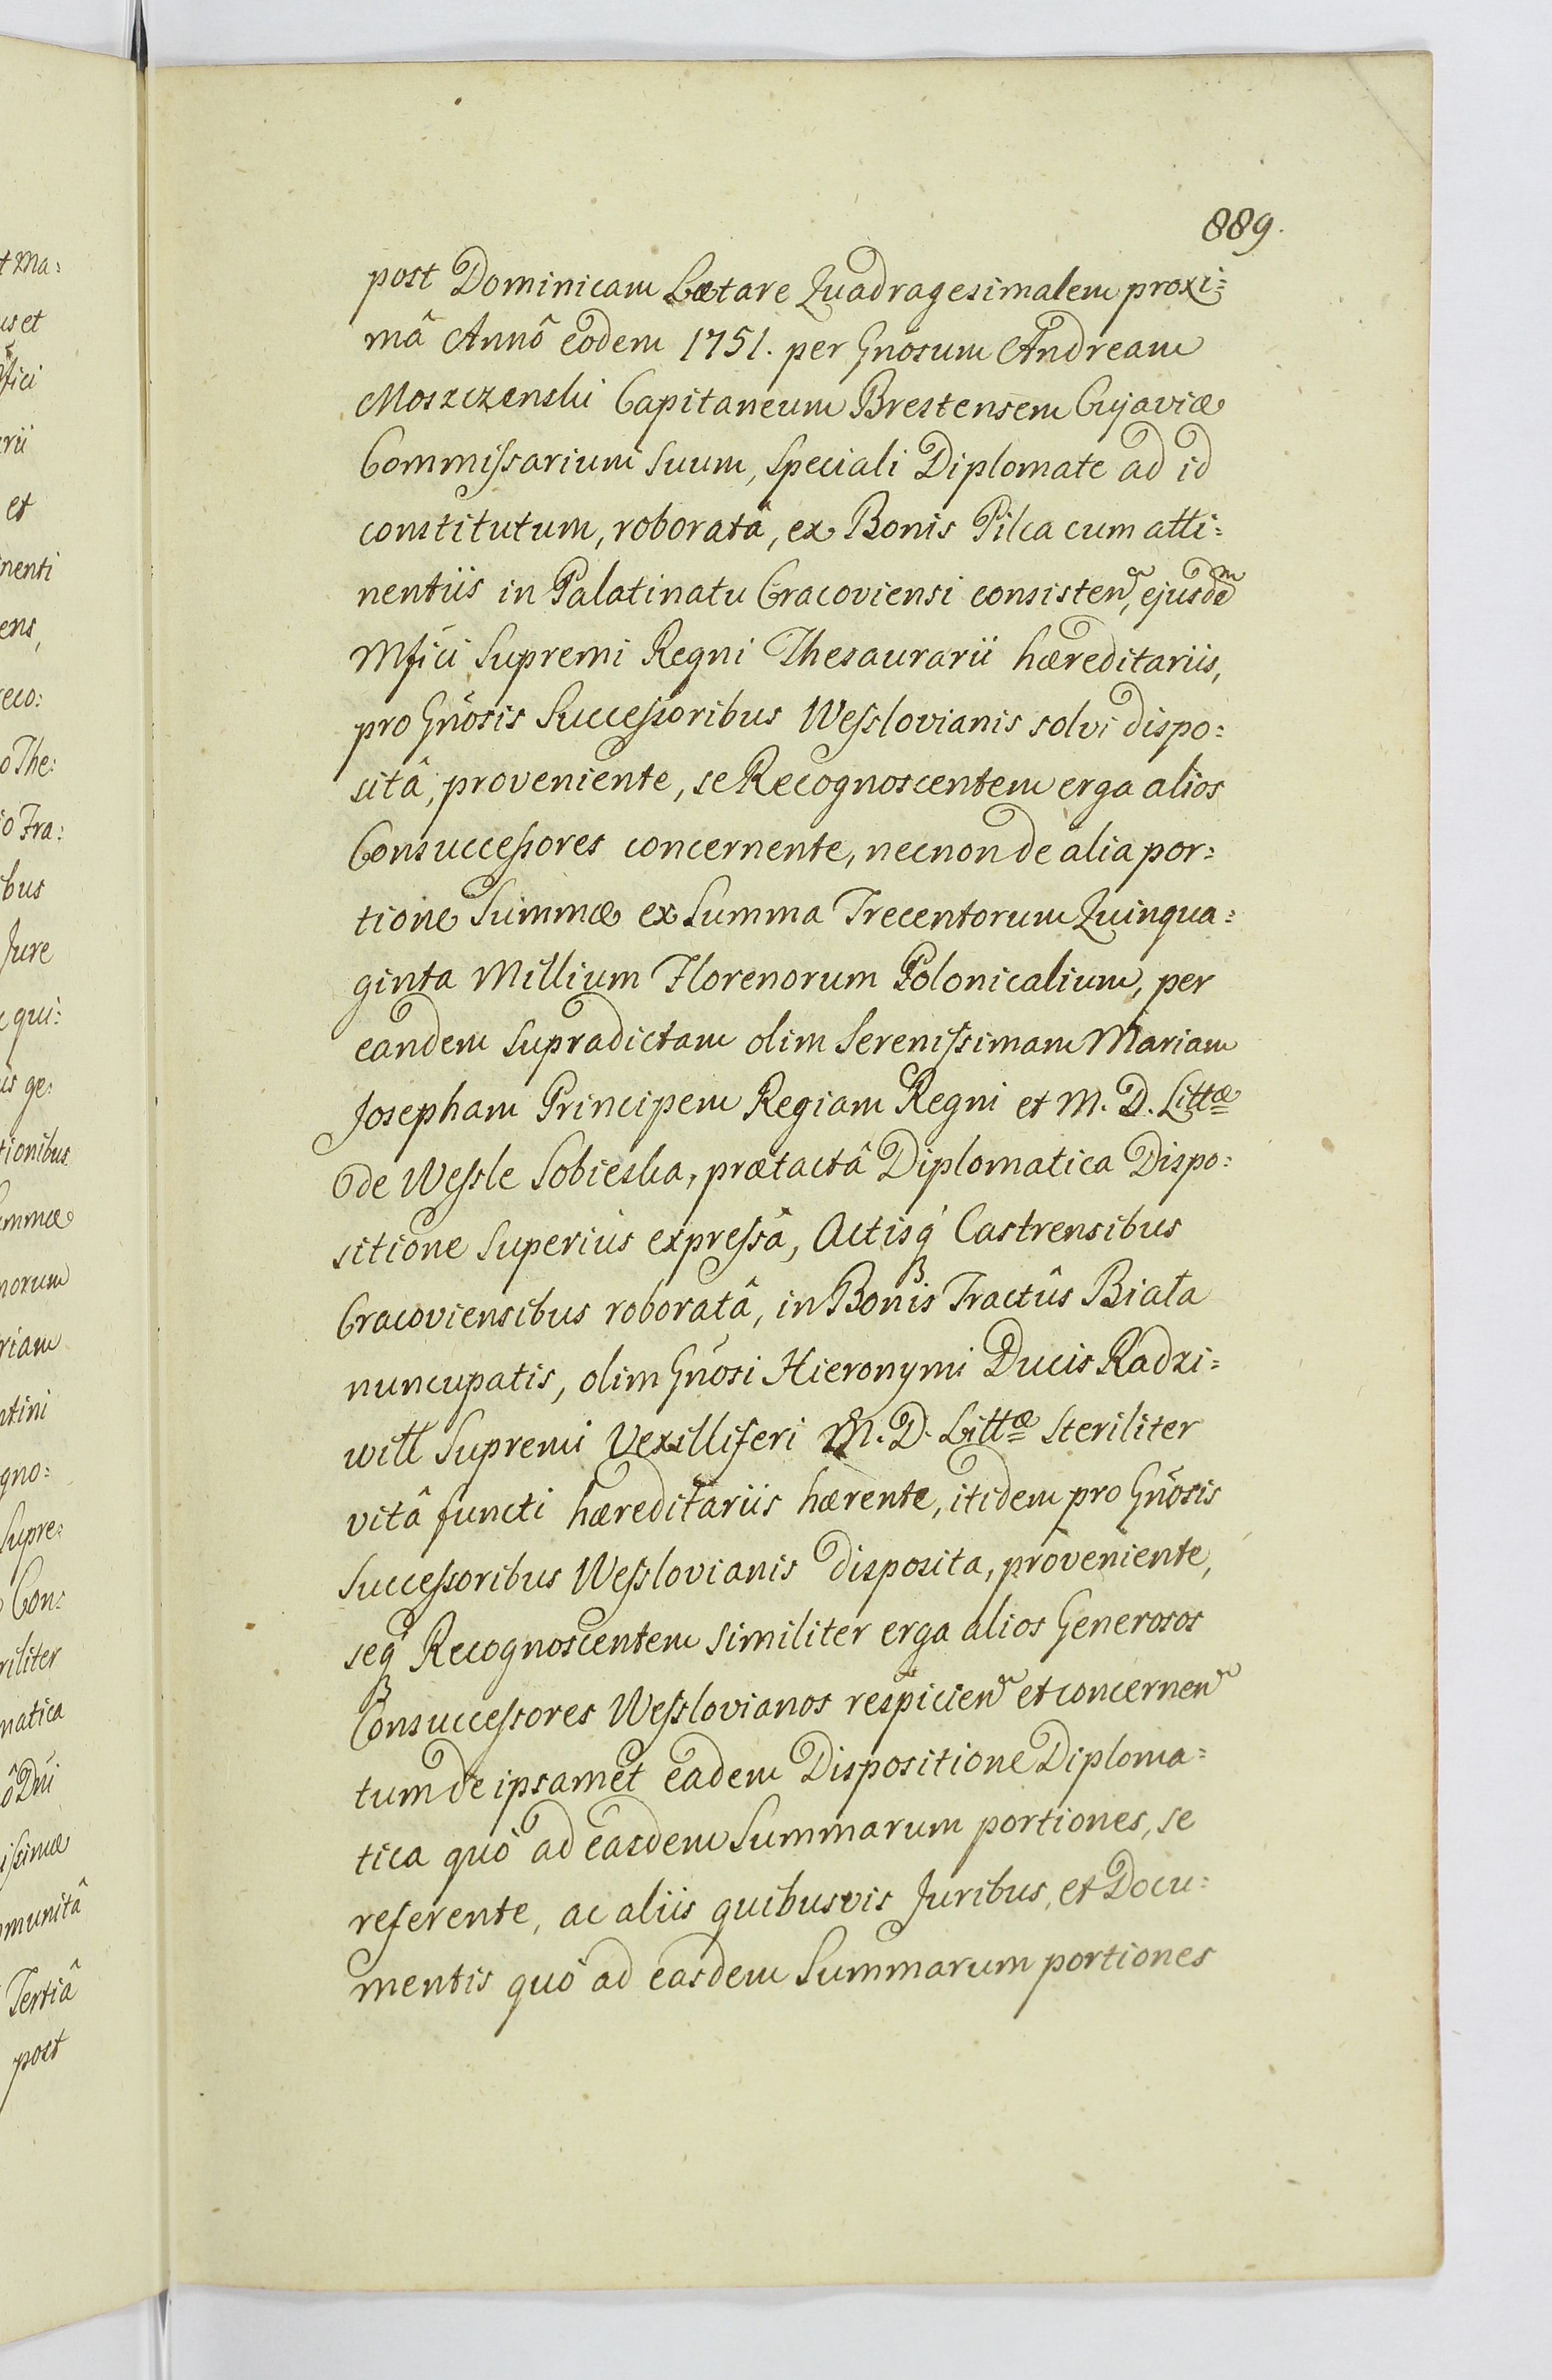 889.
post Dominicam Lætare Quadragesimalem proxi=
mâ Annô eodem 1751. per Gnosum Andream
Moszczenski Capitaneum Brestensem Cujaviæ
Commissarium Suum, Speciali Diplomate ad id
constitutum, roboratâ, ex Bonis Pilca cum atti=
nentiis in Palatinatu Cracoviensi consisten, ejusdem
Mfici Supremi Regni Thesaurarii hæreditariis,
pro Gnosis Successoribus Wesslovianis solvi dispo=
sitâ, proveniente, se Recognoscentem erga alios
Consuccessores concernente, necnon de alia por=
tione Summæ ex Summa Trecentorum Quinqua=
ginta Millium Florenorum Polonicalium, per
eandem supradictam olim Serenissimam Mariam
Josepham Principem Regiam Regni et M. D. Littæ
de Wessle Sobieska, prætactâ Diplomatica Dispo=
sitione Superiùs expressâ, Actisq́ Castrensibus
Cracoviensibus roboratâ, in Bonis Tractûs Biała
nuncupatis, olim Gnosi Hieronymi Ducis Radzi=
wiłł Supremi Vexilliferi M. D. Littæ Steriliter
vitâ functi hæreditariis hærente, itidem pro Gnosis
Successoribus Wesslovianis disposita, proveniente,
seq́ Recognoscentem similiter erga alios Generosos
Consuccessores Wesslovianos respicien et concernen
tum de ipsamet eadem Dispositione Diploma=
tica quò ad easdem Summarum portiones, se
referente, ac aliis quibusvis Juribus, et Docu=
mentis quò ad easdem Summarum portiones